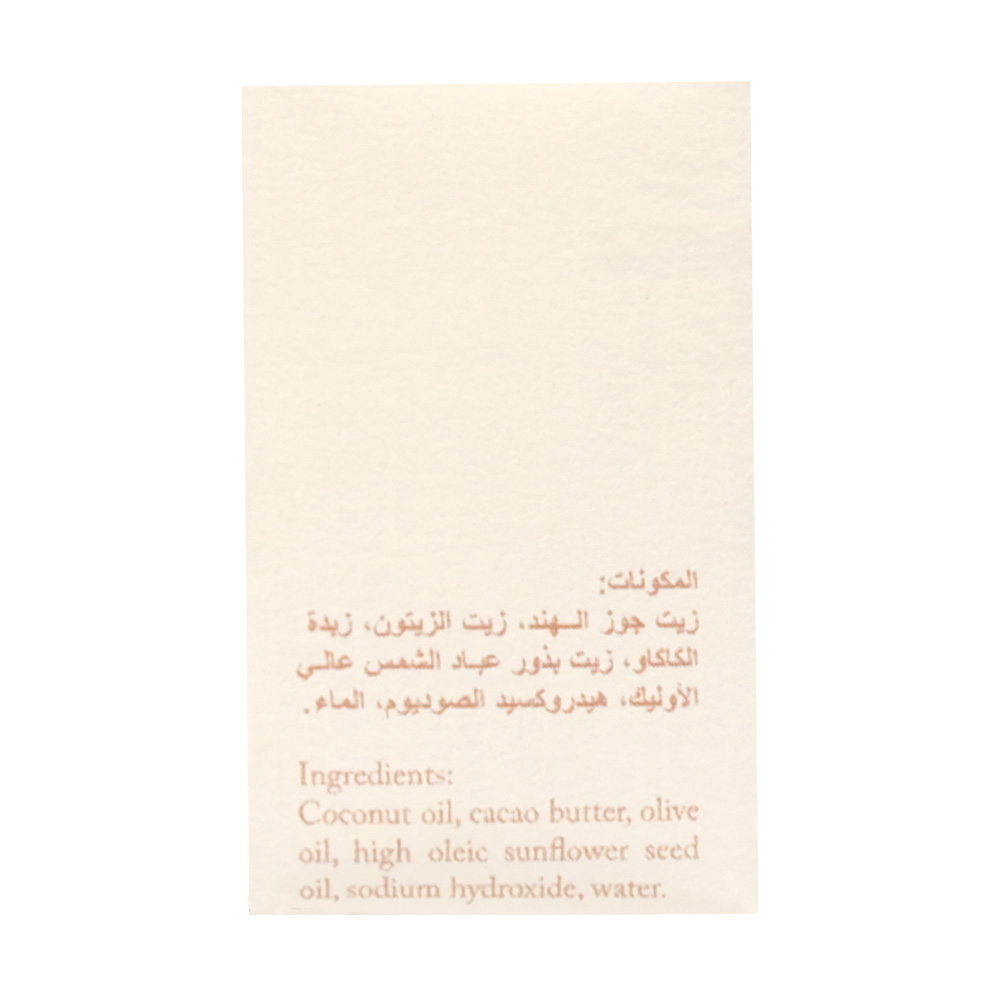 المكونات:
زيت جوز الـهند، زيت الزيتون، زبدة
الكاكاو، زيت بذور عباد الشمس عالي
الأوليك، هيدروكسيد الصوديوم، الماء.
Ingredients:
Coconut oil, cacao butter, olive
oil, high oleic sunflower seed
oil, sodium hydroxide, water.